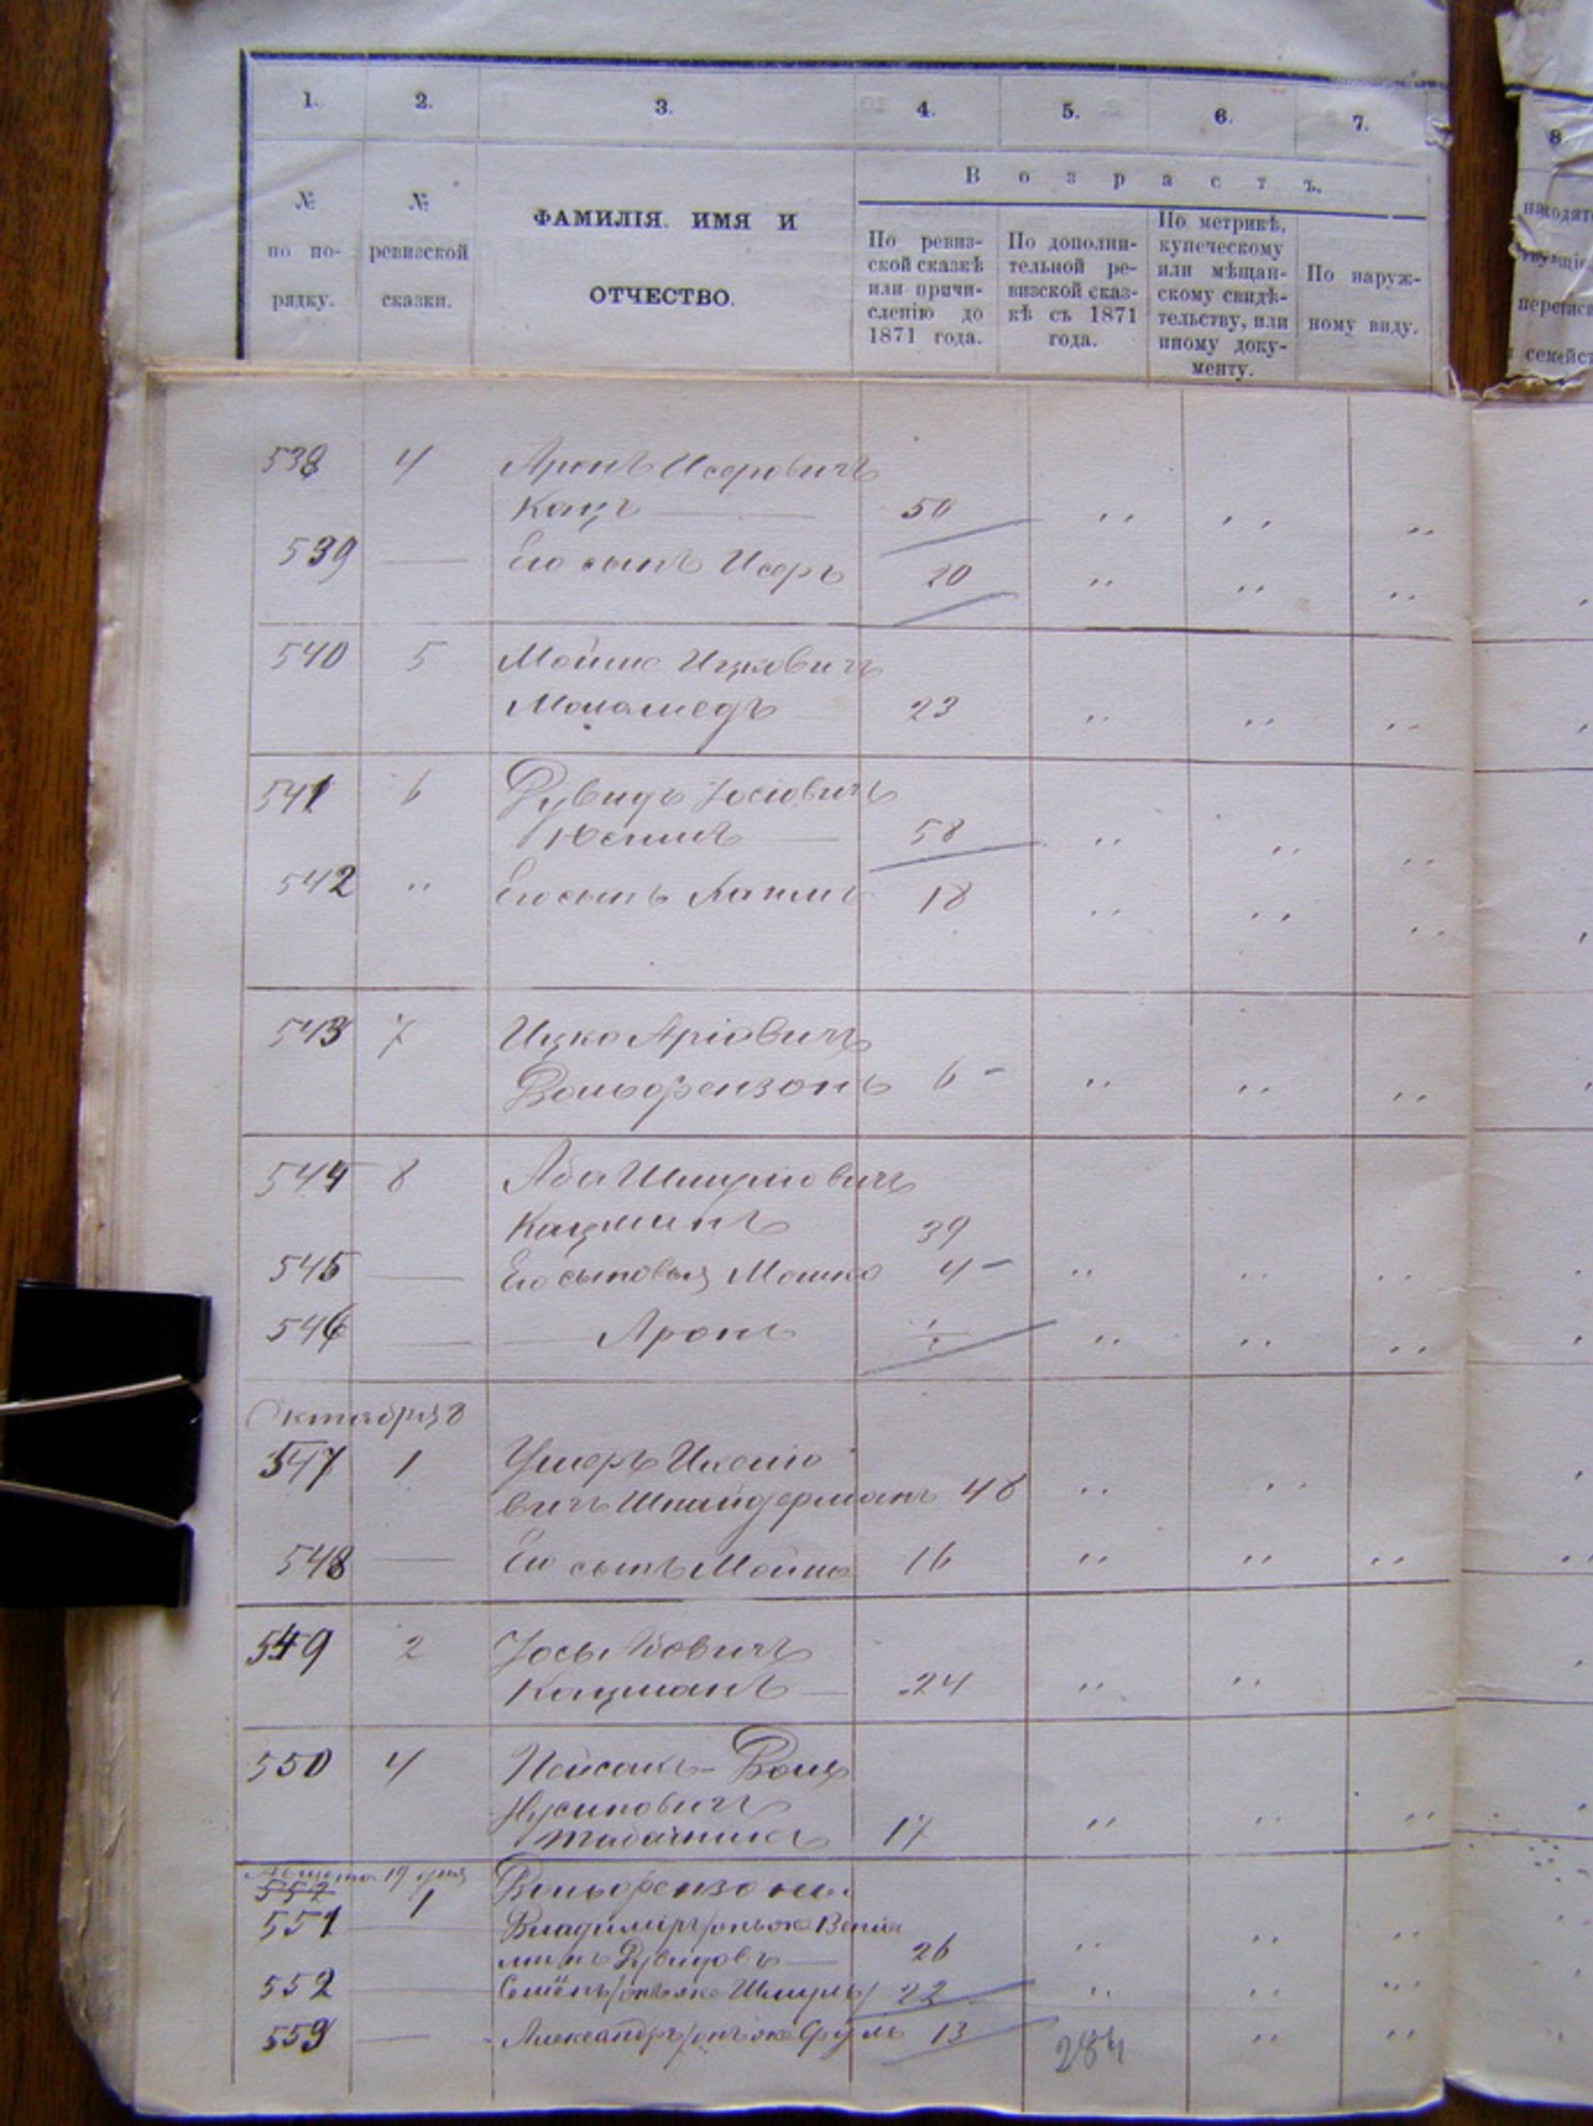 1. 2. 3. 4. 5. 6. 7.
8
Возрастъ.
№ по по-рядку.
№ ревизской сказки.
ФАМИЛІЯ, ИМЯ И
ОТЧЕСТВО.
По ревиз-
ской сказкѣ
или причи-
сленію до
1871 года.
По дополни-
тельной ре-
визской сказ-
кѣ съ 1871
года.
По метрикѣ,
купеческому
или мѣщан-
скому свидѣ-
тельству, или
иному доку-
менту.
По наруж-
ному виду.
538 4 Аронъ Исеровичъ
Кацъ 50 " " "
539 — Его сынъ Исеръ 20 " " "
540 5 Мойше Ицковичъ
23 " " "
541 6 Рувидъ Іосіовичъ
58 " " "
542 " Его сынъ 18 " " "
543 7 Ицко Аріовичъ
Вольфензонъ 6 – " " "
544 8 Аба Шмуліовичъ
Кацманъ 39
545 — Его сыновья Мошко 4 – " " "
546 — — Аронъ " " "
Октября 8
547 1 Ушеръ
вичъ Шнайдерманъ 48 " "
548 — Его сынъ Мойше 16 " " "
549 2 Іось Абовичъ
Кацманъ — 24 " "
550 4 Пейсахъ-Волъ
Нусиновичъ
Табачникъ 17 " " "
19 дня
557 1 Вольфензоны
551 — Владиміръ/онъ же Веніа
минъ Рувидовъ — 26 " " "
552 — Семёнъ/онъ же Шмуль/ 22 " " "
553 — Александръ/онъ же Сруль 13 " "
284